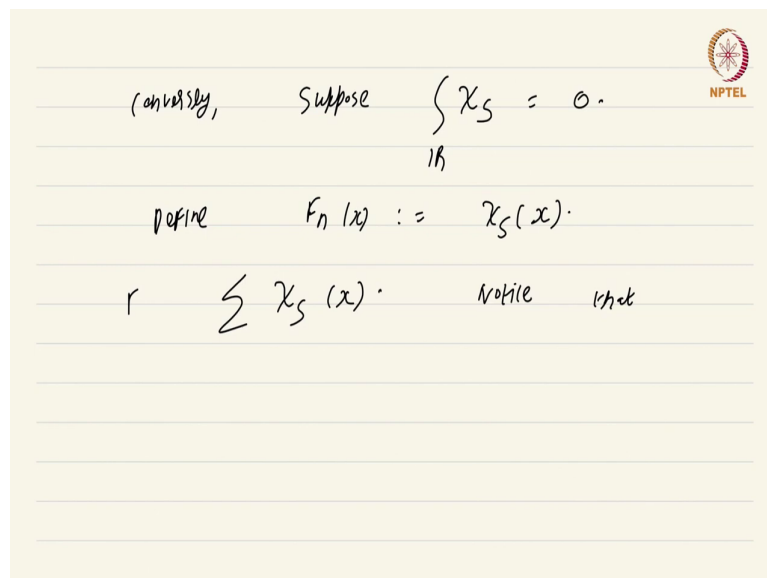 NPTEL
Conversly, Suppose ∫ χ_S = 0.
ℝ
Define F_n(x) := χ_S(x).
Σ χ_S(x). Notice that